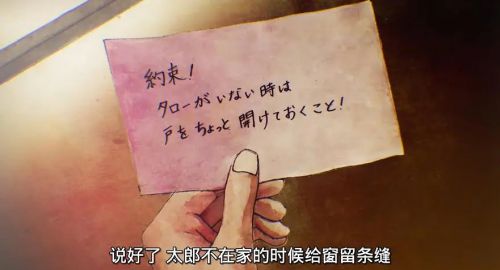 約束!
タローがいない時は
戸をちょっと開けておくこと!
说好了 太郎不在家的时候给窗留条缝